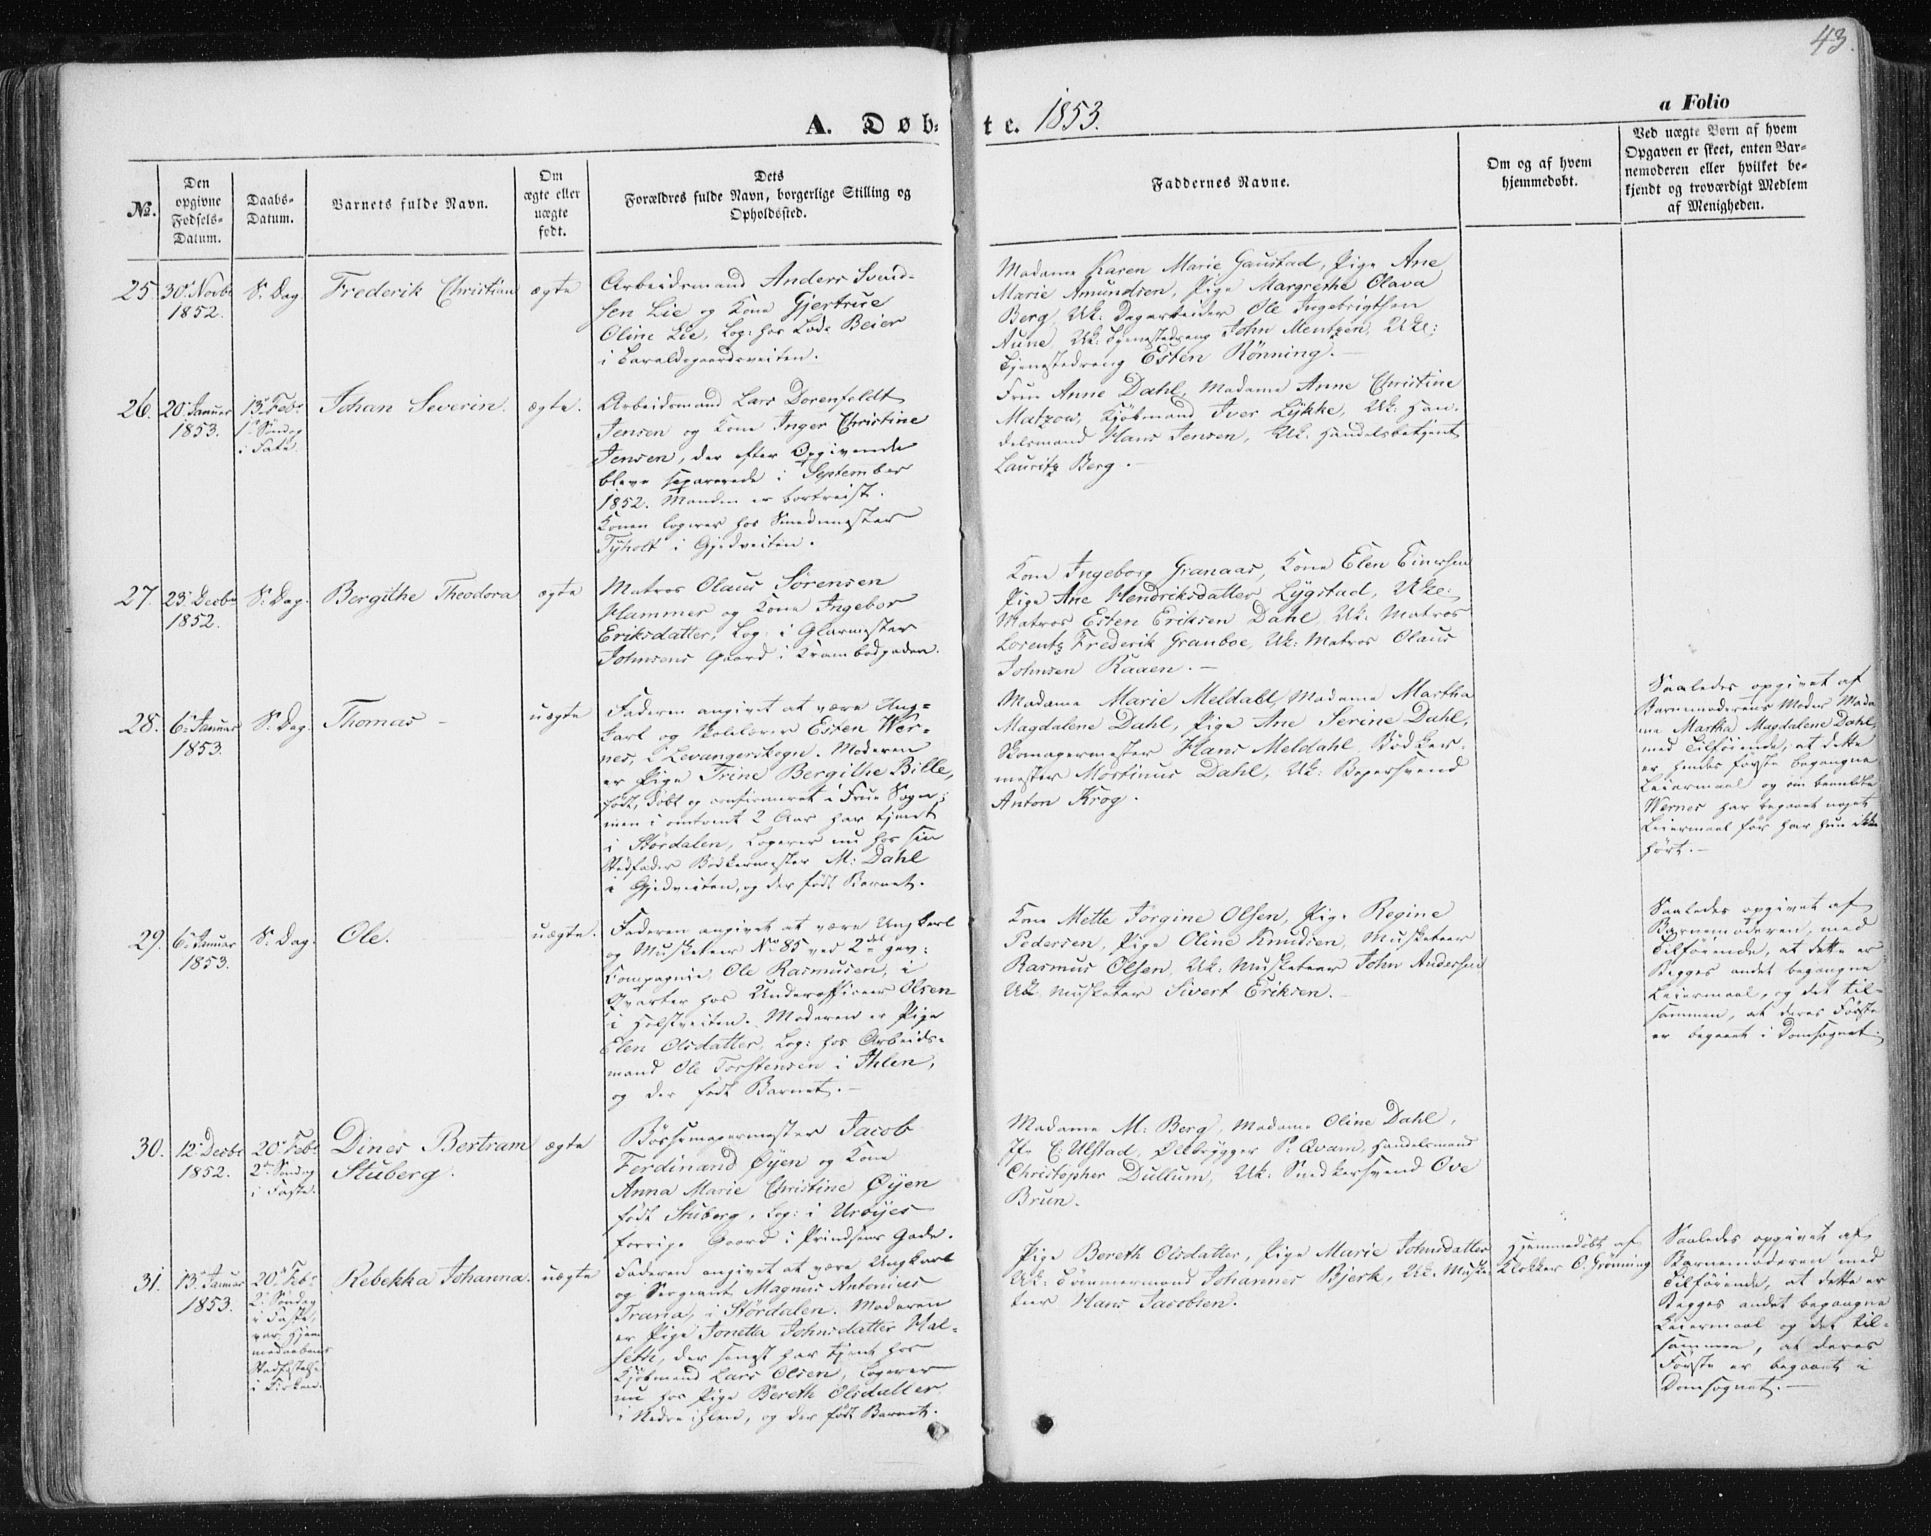 43.
a Folio
A. Døb: te. 1853.
No.
Den opgivne Fødsels-Datum.
Daabs-Datum.
Barnets fulde Navn.
Om ægte eller uægte født.
Dets Forældres fulde Navn, borgerlige Stilling og Opholdssted.
Faddernes Navne.
Om og af hvem hjemmedøbt.
Ved uægte Børn af hvem
Opgaven er skeet, enten Bar-
nemoderen eller hvilket be-
kjendt og troværdigt Medlem
af Menigheden.
25.
30 Novbr
1852.
S. Dag
Frederik Christian
ægte
Arbeidsmand Anders Svend-
sen Lie og Kone Gjertrue
Oline Lie, Log: hos Lods Beier
i Baraldsgaardsveiten.
Madame Karen Marie Gaustad, Pige Ane
Marie Amundsen, Pige Margrethe Olava
Berg, Uk: Dagarbeider Ole Ingebrigtsen
Aune, Uk: Tjenestedreng John Mentzen, Uk:
Tjenestedreng Esten Rönning.
26.
20 Januar
1853.
13 Feb:
1 Søndag
i Faste
Johan Severin.
ægte.
Arbeidsmand Lars Dorenfeldt
Jensen og Kone Inger Christine
Jensen, der efter Opgivende
bleve separerede i September
1852. Manden er bortreist.
Konen logerer hos Smedmester
Tyholt i Gjedveiten.
Frue Anne Dahl, Madame Anne Christine
Matzow, Kjøbmand Iver Lykke, Uk: Han-
delsmand Hans Jensen, Uk: Handelsbetjent
Lauritz Berg.
27.
23 Decbr
1852.
S. Dag.
Bergithe Theodora
ægte
Matros Olaus Sørensen
Hammer og Kone Ingebor
Eriksdatter, Log: i Glarmester
Johnsens Gaard i Krambodgaden.
Kone Ingeborg Granaas, Kone Elen Einersen
Pige Ane Hendriksdatter Lygstad, Uk:
Matros Esten Eriksen Dahl, Uk: Matros
Lorentz Frederik Granboe, Uk: Matros Olaus
Johnsen Raaen.
28.
6 Januar
1853.
S. Dag.
Thomas
uægte
Faderen angivet at være Ung-
karl og Skolelærer Esten Wer-
nes, i Levangerskogn. Moderen
er Pige Trine Bergithe Bille,
født, døbt og confirmeret i Frue Sogn;
men i omtrent 2 Aar har tjent
i Størdalen, logerer nu hos sin
Stedfader Bødkermester M: Dahl
i Gjedveiten, og der født Barnet.
Madame Marie Meldahl, Madame Martha
Magdalene Dahl, Pige Ane Serine Dahl,
Skomagermester Hans Meldahl, Bødker-
mester Mortinus Dahl, Uk: Bagersvend
Anton Krog.
Saaledes opgivet af
Barnemoderens Moder Mada
me Martha Magdalene Dahl,
med Tilføiende, at dette
er hendes første begangne
Leiermaal og om benældte
Wernes har begaaet noget
Leiermaal før har hun ikke
hørt.
29.
6 Januar
1853.
S. Dag.
Ole.
uægte.
Faderen angivet at være Ungkarl
og Musketeer No 85 ved 2det gev:
Compagnie, Ole Rasmusen, i
Qvarter hos Underofficeer Olsen
i Holstveiten. Moderen er Pige
Elen Olsdatter, Log: hos Arbeids-
mand Ole Torstensen i Ihlen,
og der født Barnet.
Kone Mette Jörgine Olsen, Pige Regine
Pedersen, Pige Oline Knudsen, Musketeer
Rasmus Olsen, Uk: Musketeer John Andersen
Uk: Musketeer Sivert Eriksen.
Saaledes opgivet af
Barnemoderen, med
Tilføiende, at dette er
Begges andet begangne
Leiermaal, og det til-
sammen, at deres Første
er begaaet i Domsognet.
30.
12 Decbr
1852.
20 Feb.
2 Søndag
i Faste.
Dines Bertram
Stuberg.
ægte
Bøssemagermester Jacob
Ferdinand Øyen og Kone
Anna Marie Christine Øyen
født Stuberg, Log: i Urøyes
forrige Gaard i Prindsens Gade.
Madame M: Berg, Madame Oline Dahl,
Jfr E: Ulstad, Ølbrygger P: Qvam, Handelsmand
Christopher Dullum, Uk: Snedkersvend Ove
Brun.
31.
13 Januar
1853.
20 Feb
2 Søndag
i Faste,
var Hjem
medaabens
Stadfæstelse
i Kirken.
Rebekka Johanna.
uægte
Faderen angivet at være Ungkarl
og Sergeant Magnus Antonius
Trana, i Størdalen. Moderen
er Pige Jonetta Johnsdatter Hal-
seth, der sengst har tjent hos
Kjøbmand Lars Olsen, logerer
nu hos Pige Bereth Olsdatter
i Nedre ihlen, og der født Barnet.
Pige Bereth Olsdatter, Pige Marie Johnsdatter
Uk: Tömmermand Johannes Bjerk, Uk: Muske-
teer Hans Jacobsen.
Hjemmedøbt af
Klokker O. Grønning
Saaledes opgivet af
Barnemoderen med
Tilføiende, at dette er
Begges andet begangne
Leiermaal og det til-
sammen, at deres
Første er begaaet i
Domsognet.